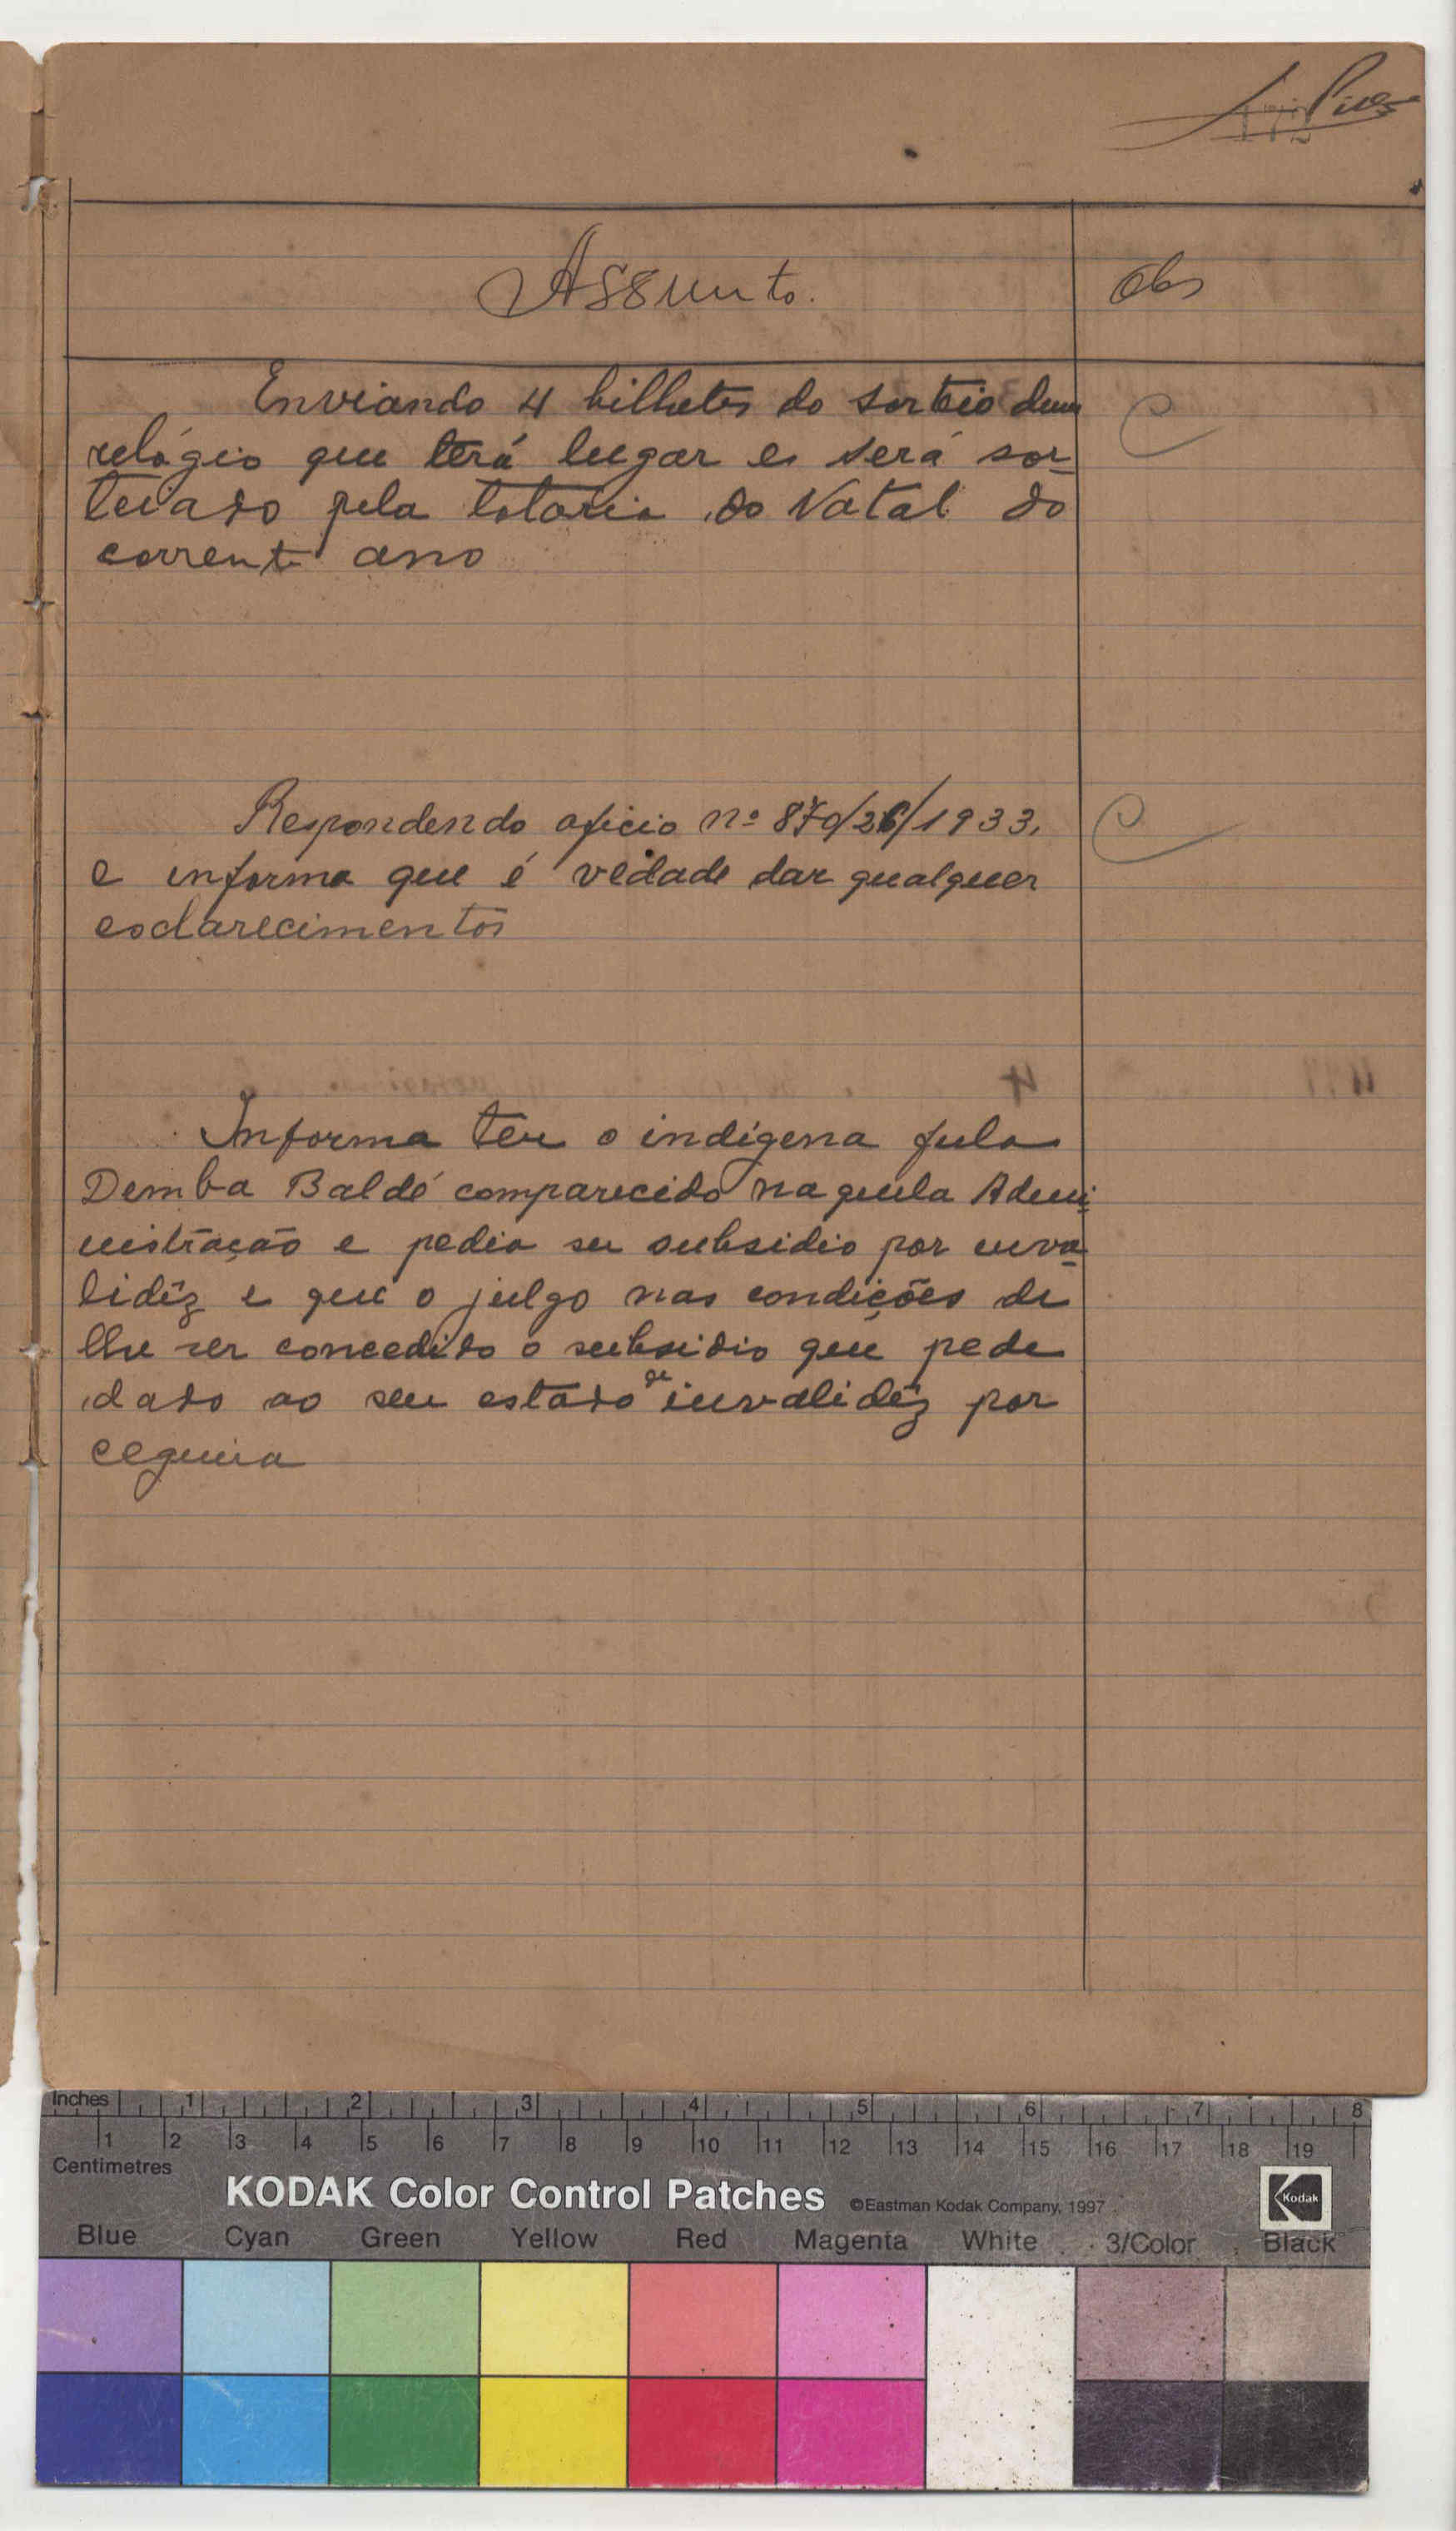 Pires
Assunto. Obs
Enviando 4 bilhetes do sorteio dum C
relógio que terá lugar e será sor-
teiado pela lotaria do Natal do
corrente ano
Respondendo oficio nº 870/26/1933, C
e informa que é vedade dar qualquer
esclarecimentos
Informa ter o indígena fula
Demba Baldé comparecido naquela Admi-
nistração e pedia su subsidio por inva-
lidêz e que o julgo nas condições de
lhe ser concedido o subsidio que pede
dado ao seu estado de invalidêz por
cegueira
Inches 1 2 3 4 5 6 7 8
1 2 3 4 5 6 7 8 9 10 11 12 13 14 15 16 17 18 19
Centimetres
KODAK Color Control Patches ©Eastman Kodak Company, 1997 Kodak
Blue Cyan Green Yellow Red Magenta White 3/Color Black